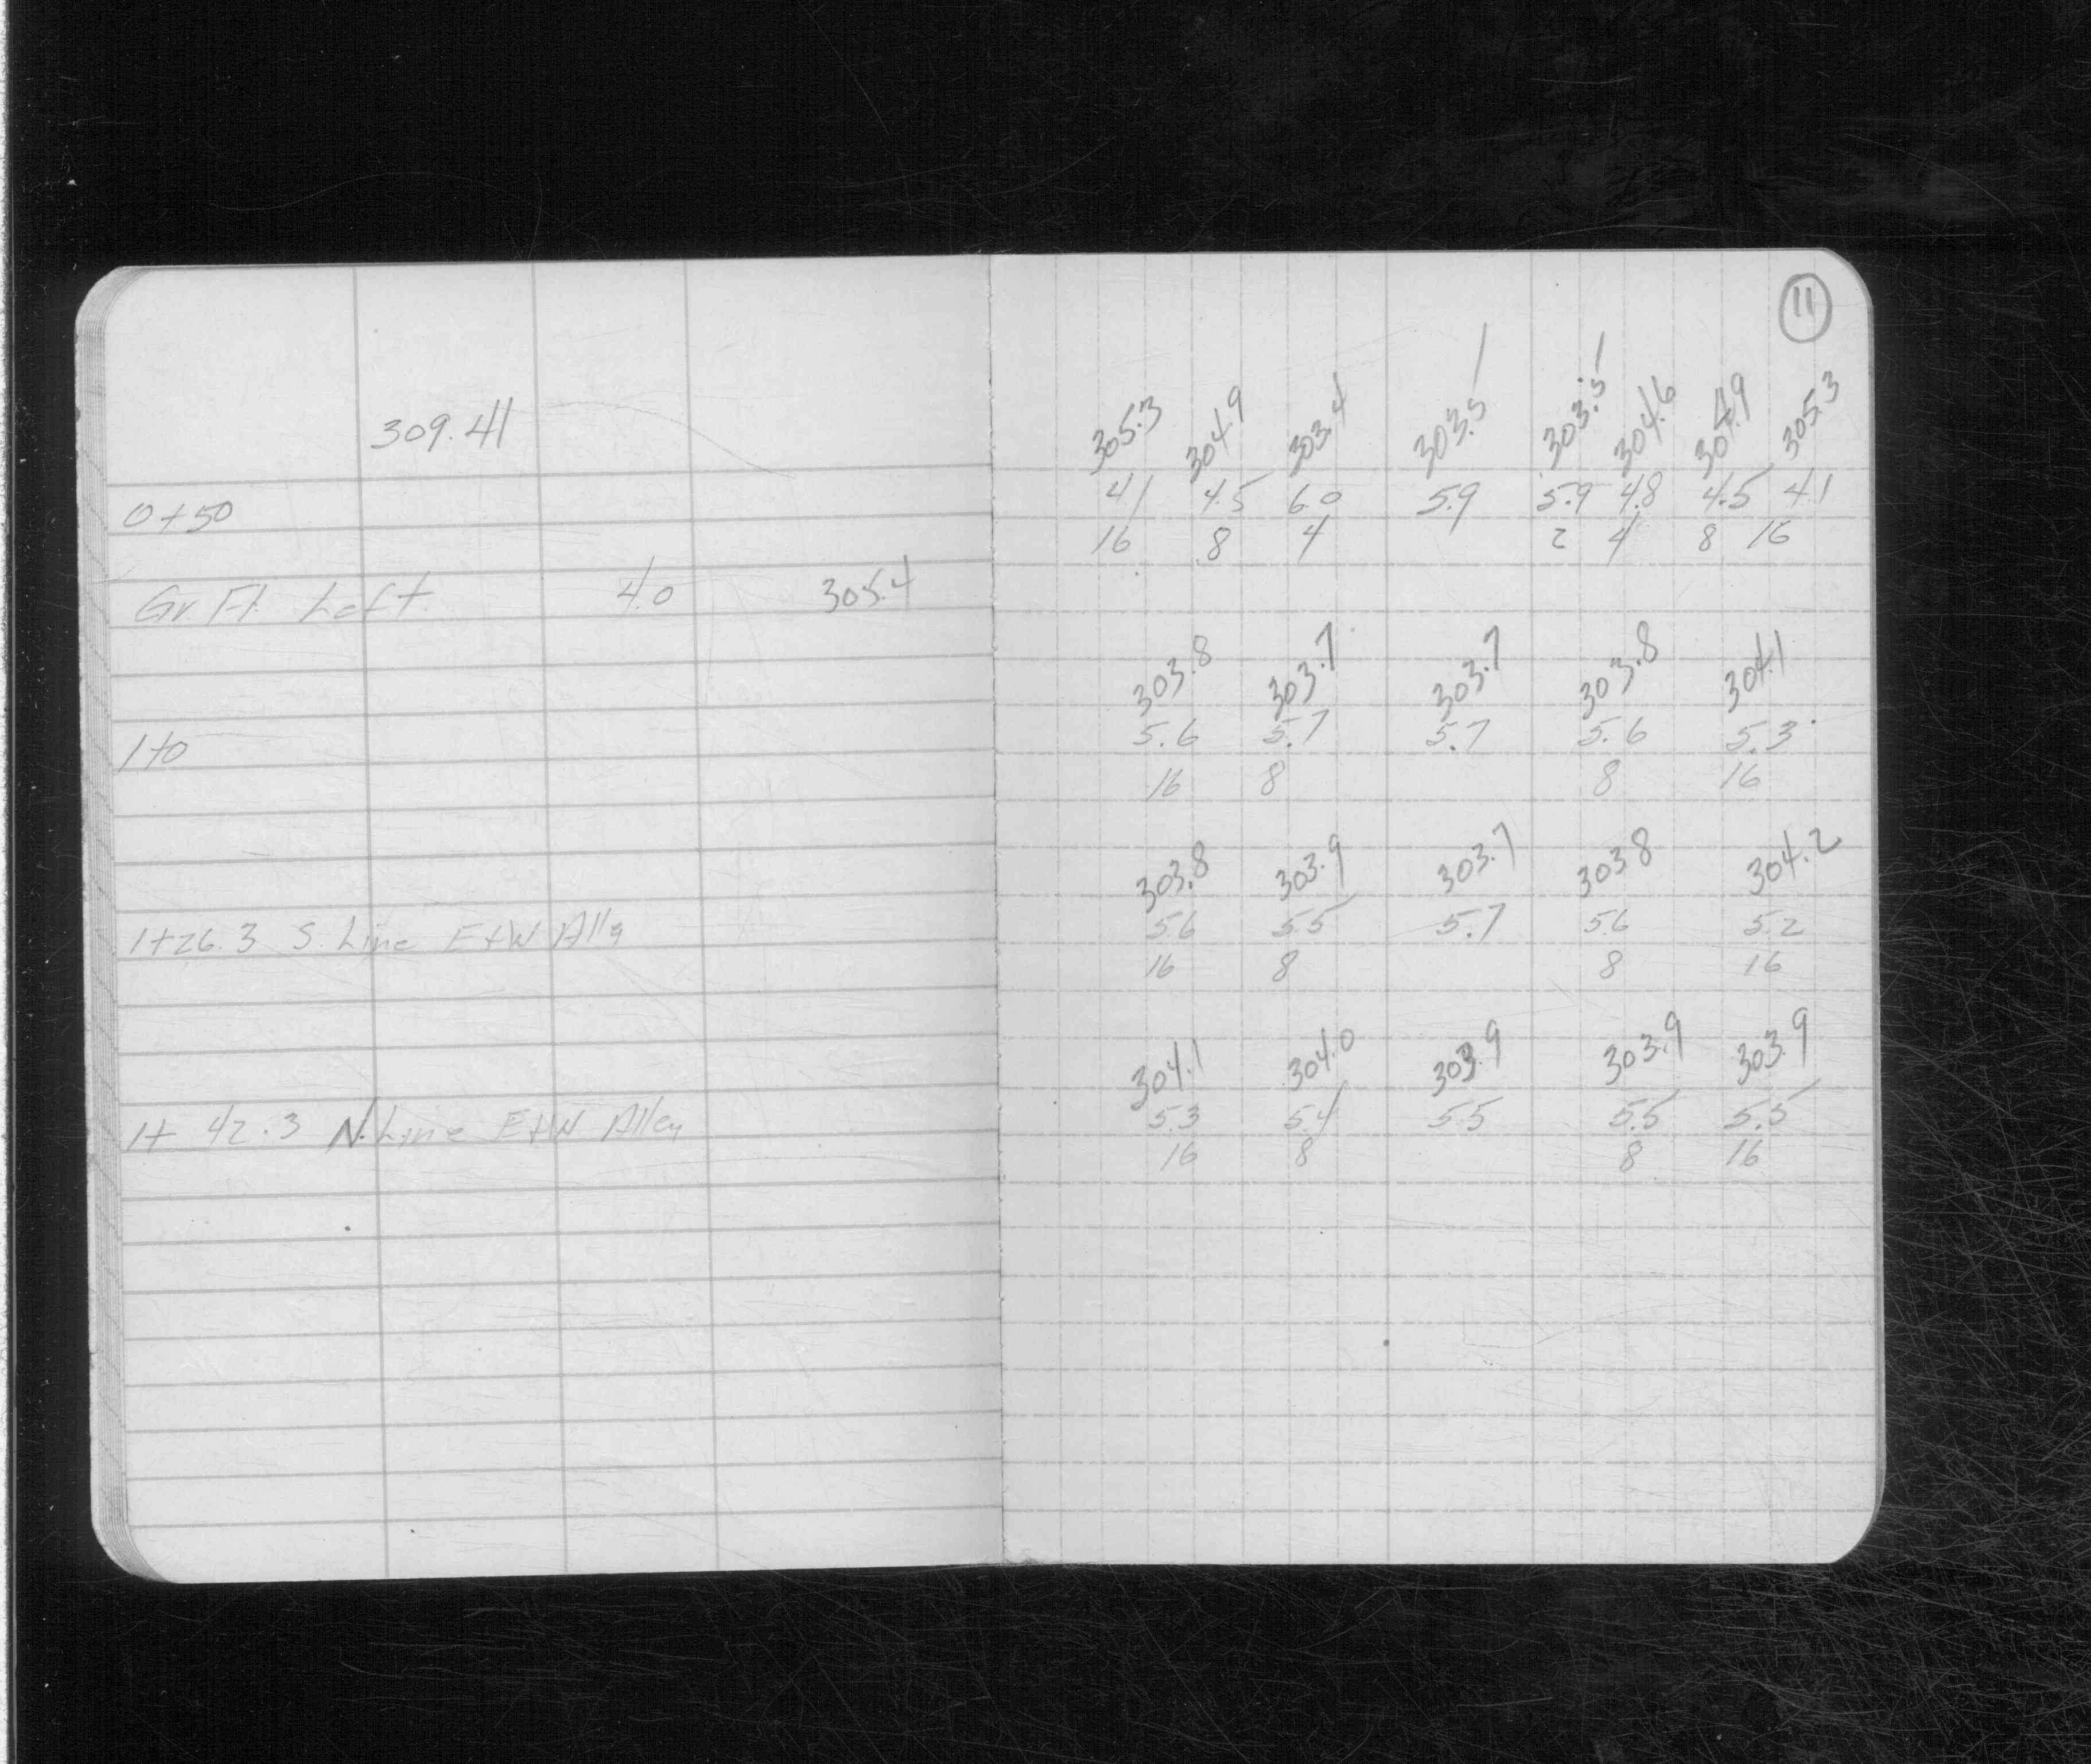 11
309.41
305.3 304.9 303.4 303.5 303.5 304.6 304.9 305.3
0+50 4.1 4.5 6.0 5.9 5.9 4.8 4.5 4.1
16 8 4 2 4 8 16
Gr. Ft. Left 4.0 305.4
303.8 303.7 303.7 303.8 304.1
1+0 5.6 5.7 5.7 5.6 5.3
16 8 8 16
303.8 303.9 303.7 303.8 304.2
1+26.3 S. Line E+W Ally 56 55 5.7 56 52
16 8 8 16
304.1 304.0 303.9 303.9 303.9
1+42.3 N. Line E+W Alley 5.3 5.4 55 5.5 5.5
16 8 8 16